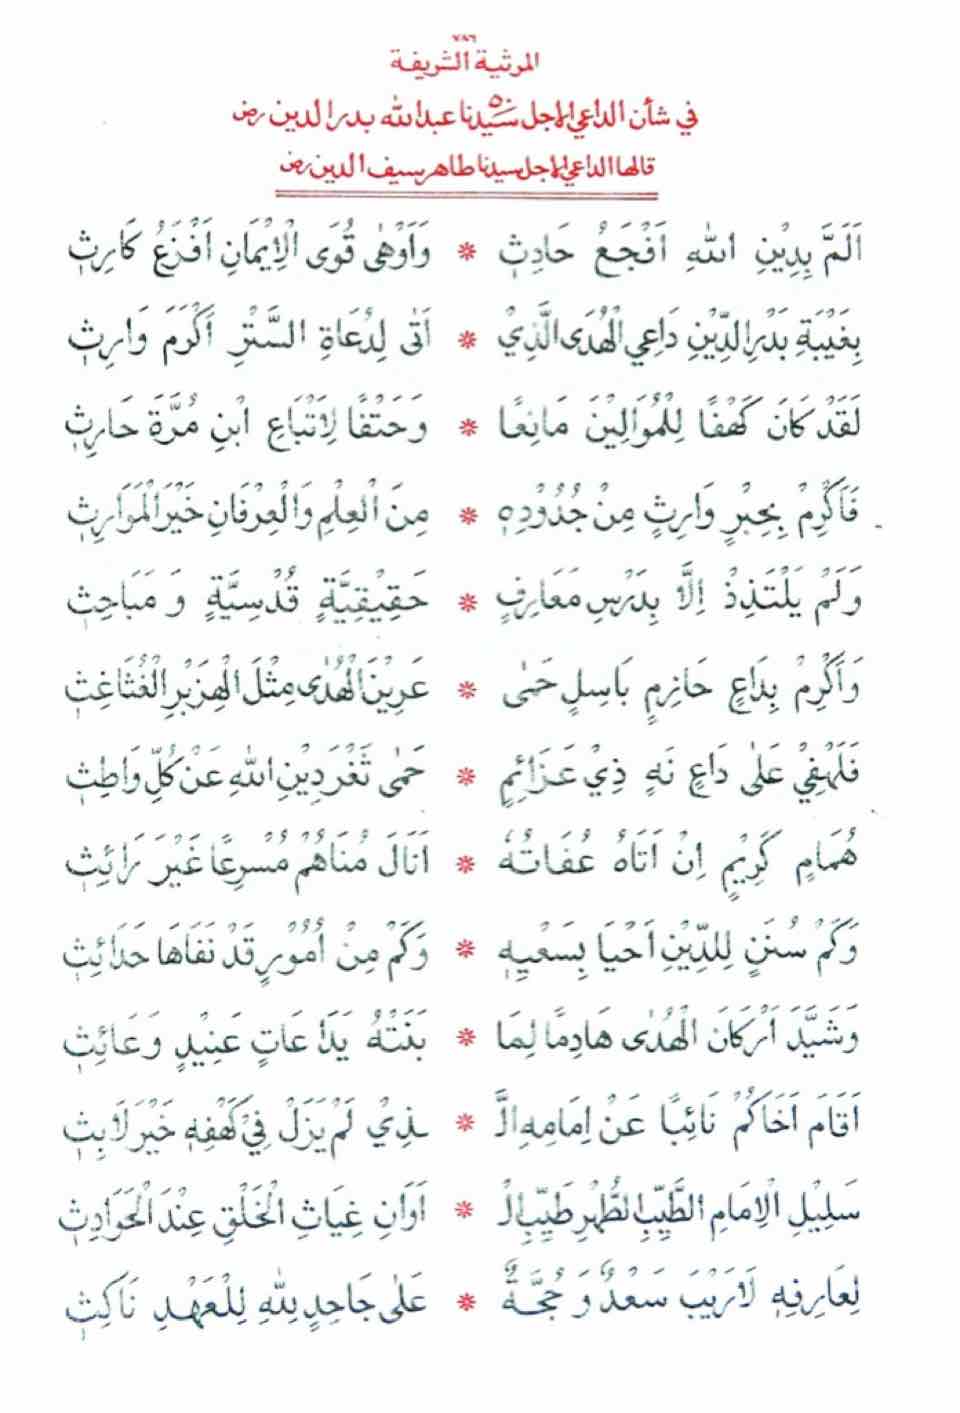 ٧٨٦
المرثية الشريفة
في شأن الداعي الاجل سيدنا عبد الله بدر الدين رض
٥٠
قالها الداعي الاجل سيدنا طاهر سيف الدين رض
اَلَمَّ بِدِيْنِ اللهِ اَفْجَعُ حَادِثٍ * وَاَوْهٰى قُوَى الْاِيْمَانِ اَفْزَعُ كَارِثِ
بِغَيْبَةِ بَدْرِ الدِّيْنِ دَاعِي الْهُدَى الَّذِيْ * اَتٰى لِدُعَاةِ السَّتْرِ اَكْرَمَ وَارِثِ
لَقَدْ كَانَ كَهْفًا لِلْمُوَالِيْنَ مَانِعًا * وَحَتْفًا لِاَتْبَاعِ ابْنِ مُرَّةَ حَارِثِ
فَاَكْرِمْ بِحِبْرٍ وَارِثٍ مِنْ جُدُوْدِهِ * مِنَ الْعِلْمِ وَالْعِرْفَانِ خَيْرَ الْمَوَارِثِ
وَلَمْ يَلْتَذِذْ اِلَّا بِدَرْسِ مَعَارِفٍ * حَقِيْقِيَّةٍ قُدْسِيَّةٍ وَ مَبَاحِثِ
وَاَكْرِمْ بِدَاعٍ حَازِمٍ بَاسِلٍ حَمٰى * عَرِيْنَ الْهُدٰى مِثْلَ الْهِزَبْرِ الْغُثَاغِثِ
فَلَهْفِيْ عَلٰى دَاعٍ نَهٍ ذِيْ عَزَائِمٍ * حَمٰى ثَغْرَ دِيْنِ اللهِ عَنْ كُلِّ وَاطِثِ
هُمَامٍ كَرِيْمٍ اِنْ اَتَاهُ عُفَاتُهُ * اَنَالَ مُنَاهُمْ مُسْرِعًا غَيْرَ رَائِثِ
وَكَمْ سُنَنٍ لِلدِّيْنِ اَحْيَا بِسَعْيِهِ * وَكَمْ مِنْ اُمُوْرٍ قَدْ نَفَاهَا حَدَائِثِ
وَشَيَّدَ اَرْكَانَ الْهُدٰى هَادِمًا لِمَا * بَنَتْهُ يَدَا عَاتٍ عَنِيْدٍ وَعَائِثِ
اَقَامَ اَخَاكُمْ نَائِبًا عَنْ اِمَامِهِ الَّـ * ـذِيْ لَمْ يَزَلْ فِيْ كَهْفِهِ خَيْرَ لَابِثِ
سَلِيْلِ الْاِمَامِ الطَّيِّبِ الطُّهْرِ طَيِّبِ الْـ * اَوَانِ غِيَاثِ الْخَلْقِ عِنْدَ الْحَوَادِثِ
لِعَارِفِهِ لَا رَيْبَ سَعْدٌ وَ حُجَّةٌ * عَلٰى جَاحِدٍ لِلّٰهِ لِلْعَهْدِ نَاكِثِ